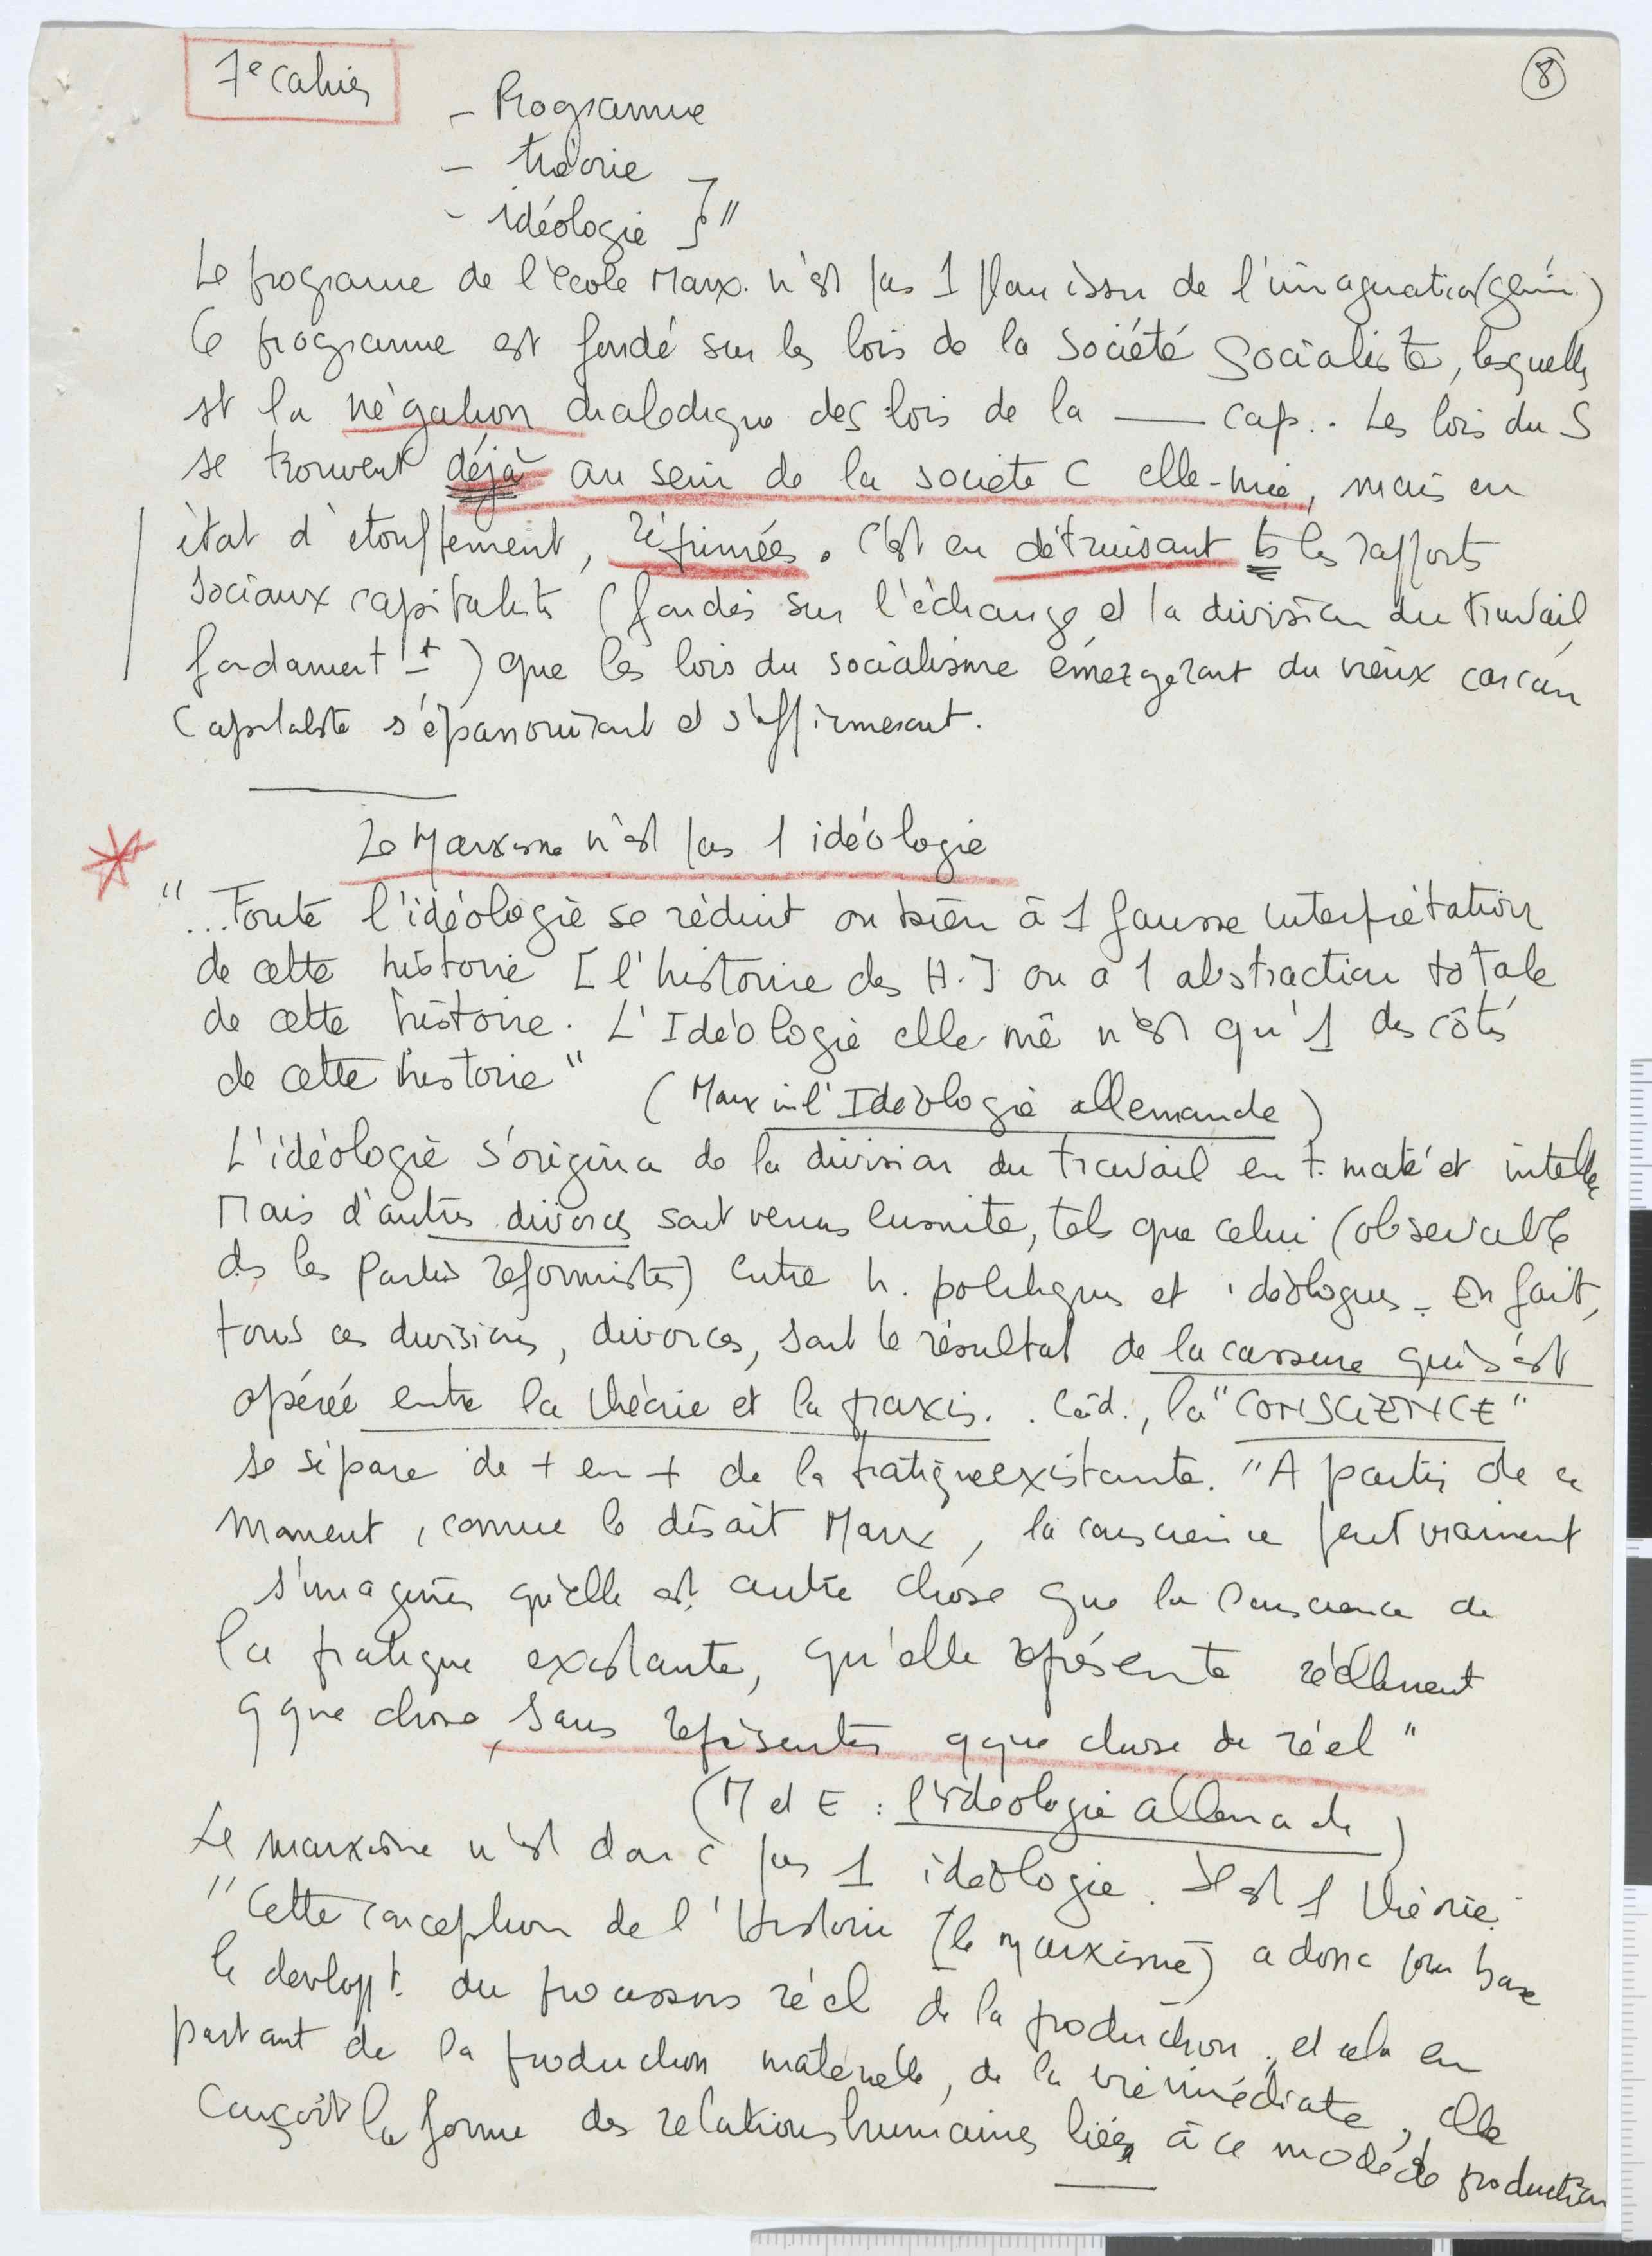 7e cahier
8
- Programme
- théorie
- idéologie
Le programme de l'école Marx. n'est pas 1 plan issu de l'imagination
Ce programme est fondé sur les lois de la Société Socialiste, lesquelles
st la négation dialectique des lois de la —— cap.. Les lois du S
se trouvent déjà au sein de la société C elle-mme, mais en
état d'étouffement, réprimées. C'est en détruisant ts les rapports
sociaux capitalistes (fondés sur l'échange et la division du travail
fondament!t) que les lois du socialisme émergeront du vieux carcan
capitaliste s'épanouiront et s'affirmeront.
Le Marxisme n'est pas 1 idéologie
"...Toute l'idéologie se réduit ou bien à 1 fausse interprétation
de cette histoire [l'histoire des H.] ou à 1 abstraction totale
de cette histoire. L'Idéologie elle-mê n'est qu'1 des côtés
de cette histoire"
(Marx in l'Idéologie allemande)
L'idéologie s'origina de la division du travail en t. maté et intelle
Mais d'autres divorces sont venus ensuite, tels que celui (observable
ds les Partis réformistes) entre h. politiques et idéologues. En fait,
tous ces divisions, divorces, sont le résultat de la cassure qui s'est
opérée entre la théorie et la praxis. . Càd., la "CONSCIENCE"
se sépare de + en + de la pratique existante. "A partir de ce
moment, comme le disait Marx, la conscience peut vraiment
s'imaginer qu'elle est autre chose que la conscience de
la pratique existante, qu'elle représente réellement
qque chose, sans représenter qque chose de réel"
(M et E : l'idéologie allemade)
Le marxisme n'est donc pas 1 idéologie. Il est 1 théorie.
"Cette conception de l'Histoire [le marxisme) a donc pour base
le devlopt. du processus réel de la production, et cela en
partant de la production matérielle, de la vie immédiate, elle
conçoit la forme des relations humaines liées à ce mode de production